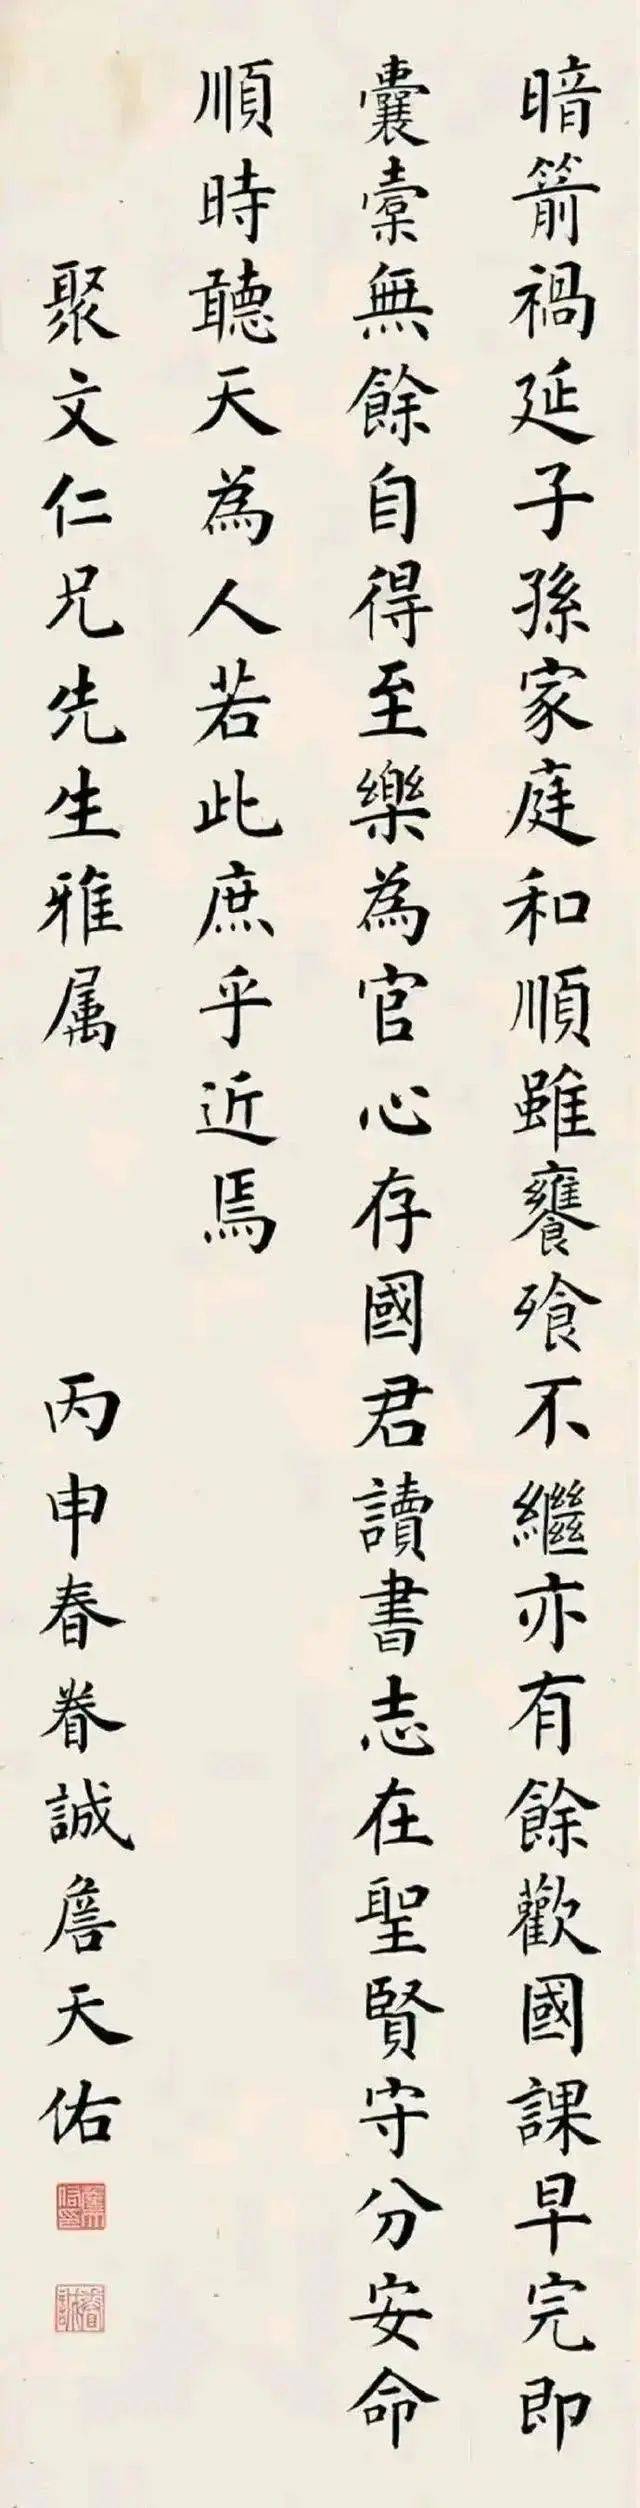 暗箭禍延子孫家庭和順雖饔飧不繼亦有餘歡國課早完即
囊橐無餘自得至樂為官心存國君讀書志在聖賢守分安命
順時聽天為人若此庶乎近焉
聚文仁兄先生雅属
丙申春眷誠詹天佑